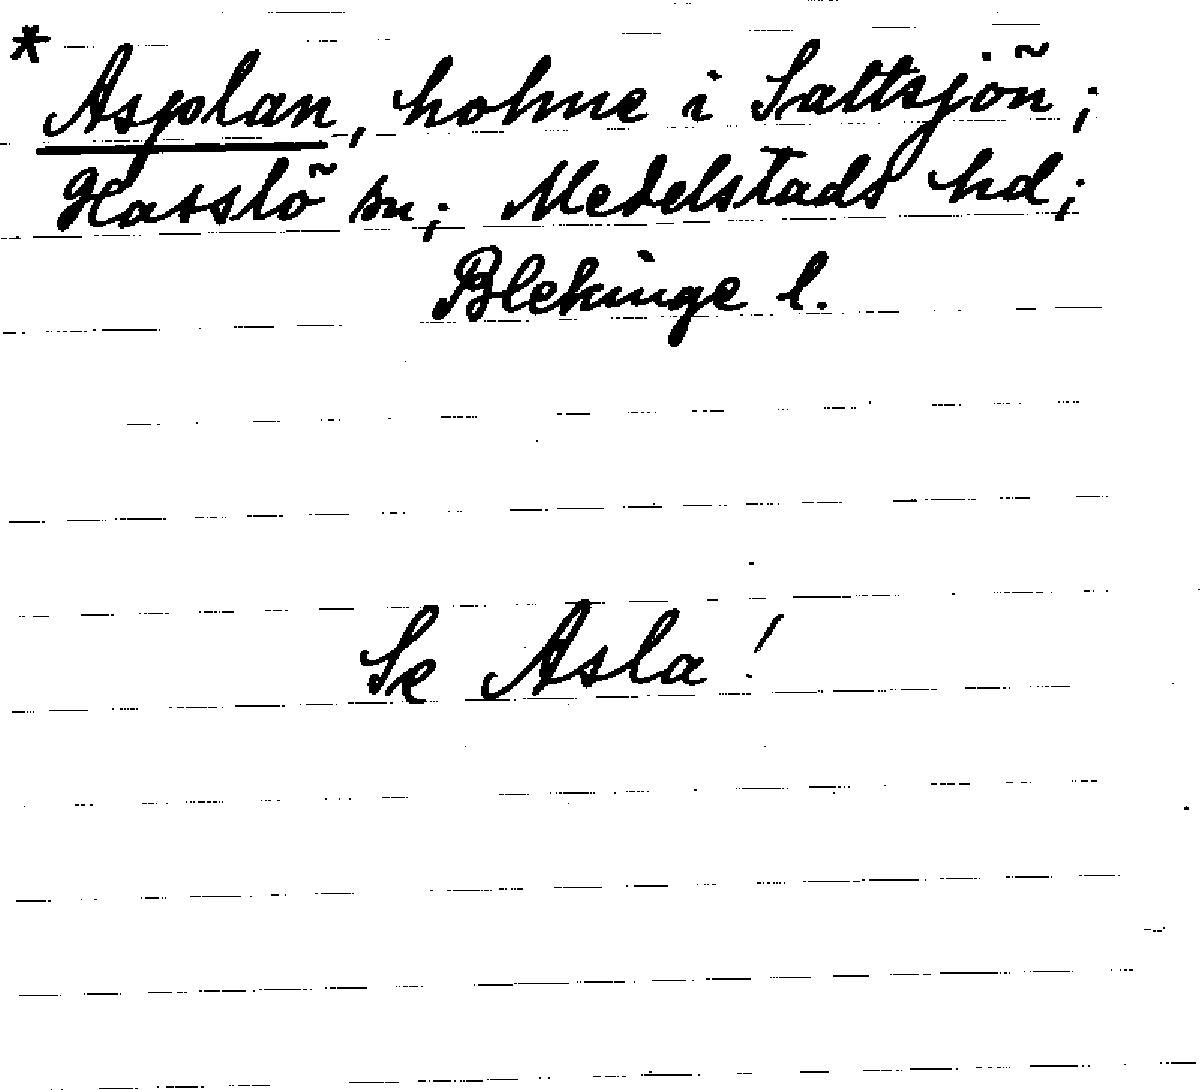 * Asplan, holme i Saltsjön;
Hasslö sn; Medelstads hd;
Blekinge l.
Se Asla!